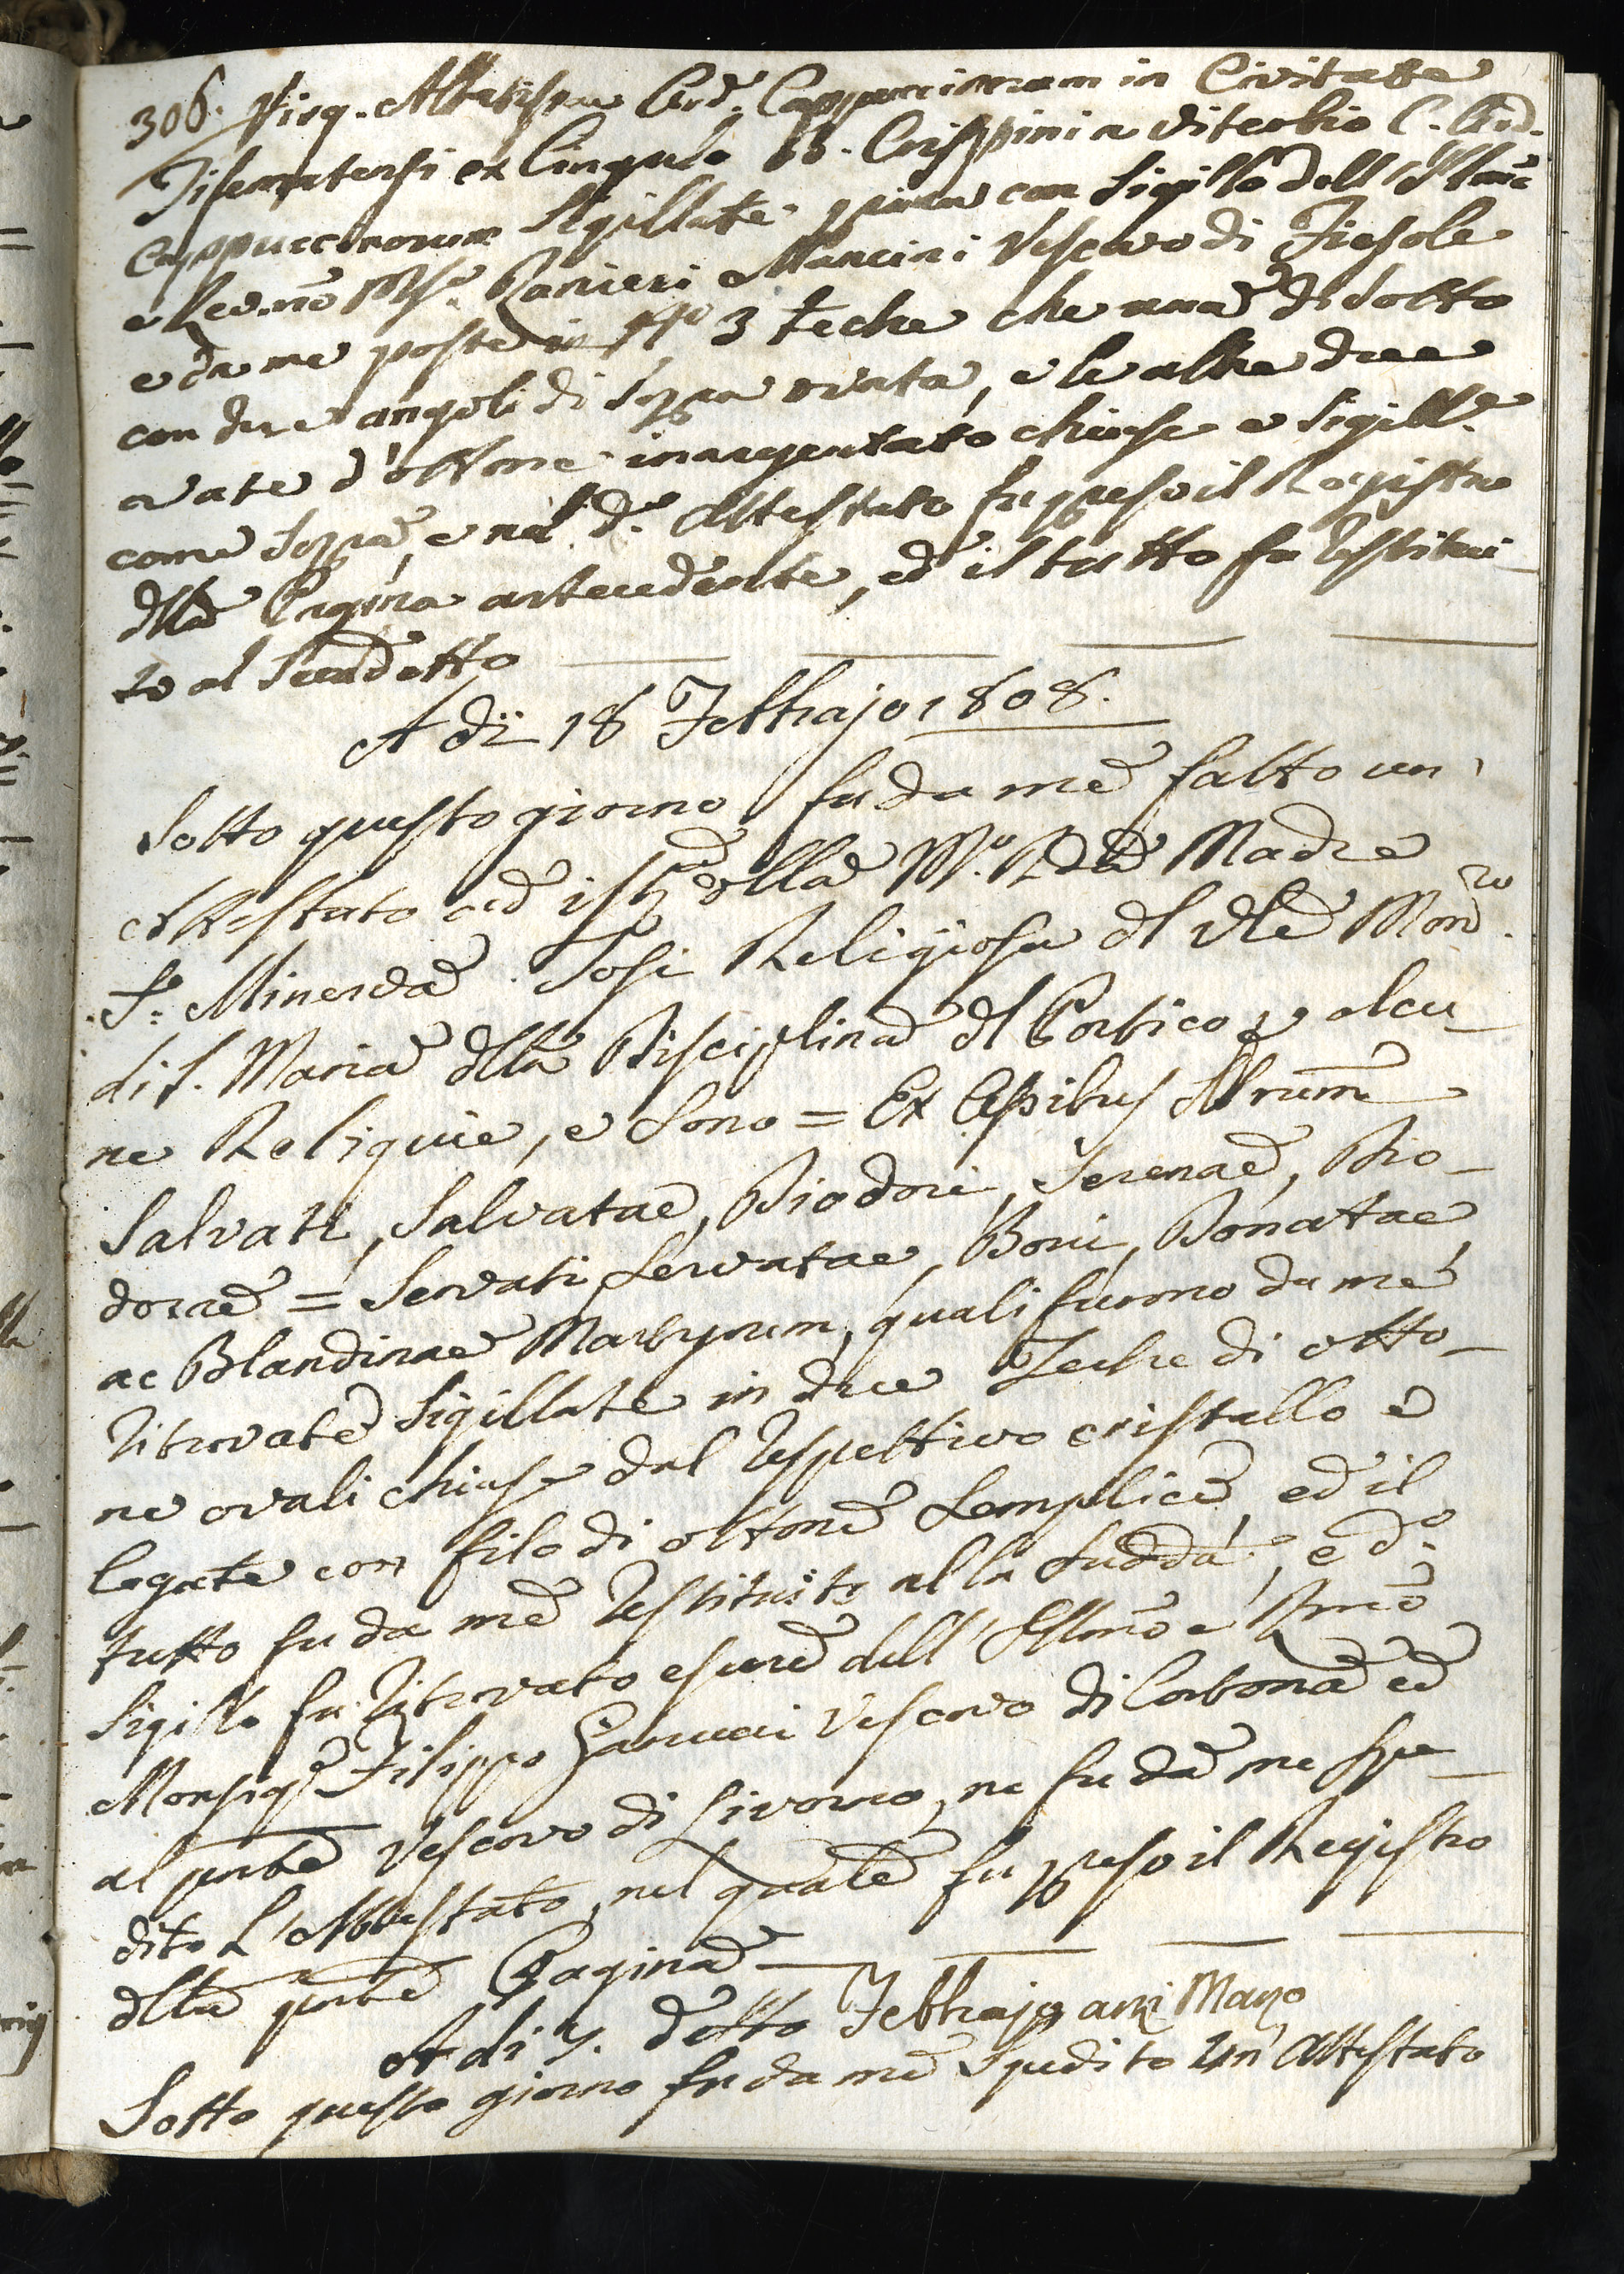 306. Virg. Abbatissae Ord. Cappuccinarum in Civitate
Tifernatensi ex Cingulo bb. Crispini a Viterbio C. Ord.
Cappuccinorum Sigillate prima con Sigillo dell'Illmo
e Revmo Msr. Ranieri Mancini Vescovo di Fiesole
e da me poste in No 3 teche che una di sotto
con due angoli di sopra ovata, e le altre due
ovate d'ottone inargentato chiuse e Sigille
come sopra, e nel do. Attestato fu preso il Registro
dlla Pagina antecedente, ed il tutto fu restitui-
to al Suddetto
A dì 18 Febbrajo 1808.
Sotto questo giorno fu da me fatto un'
Attestato ad istza dlla Mo. Rda Madre
Sr. Minerva Tosi Religiosa dl Vle Monro.
di S. Maria dlla Disciplina dl Portico p alcu-
ne Reliquie, e Sono = Ex Ossibus SSrum
Salvati, Salvatae, Diodori, Serenae, Dio-
dorae = Servati Servatae, Boni, Donatae,
ac Blandinae Martyrum, quali furono da me
ritrovate Sigillate in due Teche di otto-
ne ovali chiuse dal respettivo cristallo e
legate con filo di ottone Semplice, ed il
tutto fu da me restituito alla Sudda, e do.
Sigillo fu ritrovato essere dell'Illmo e Rmo
Monsigr Filippo Ganucci Vescovo di Cortona ed
al pnte Vescovo di Livorno, ne fu da me spe-
dito L'Attestato, nel quale fu preso il Registro
dlla pnte Pagina
A di 7. detto Febbrajo anzi Marzo
Sotto questo giorno fu da me Spedito un Attestato